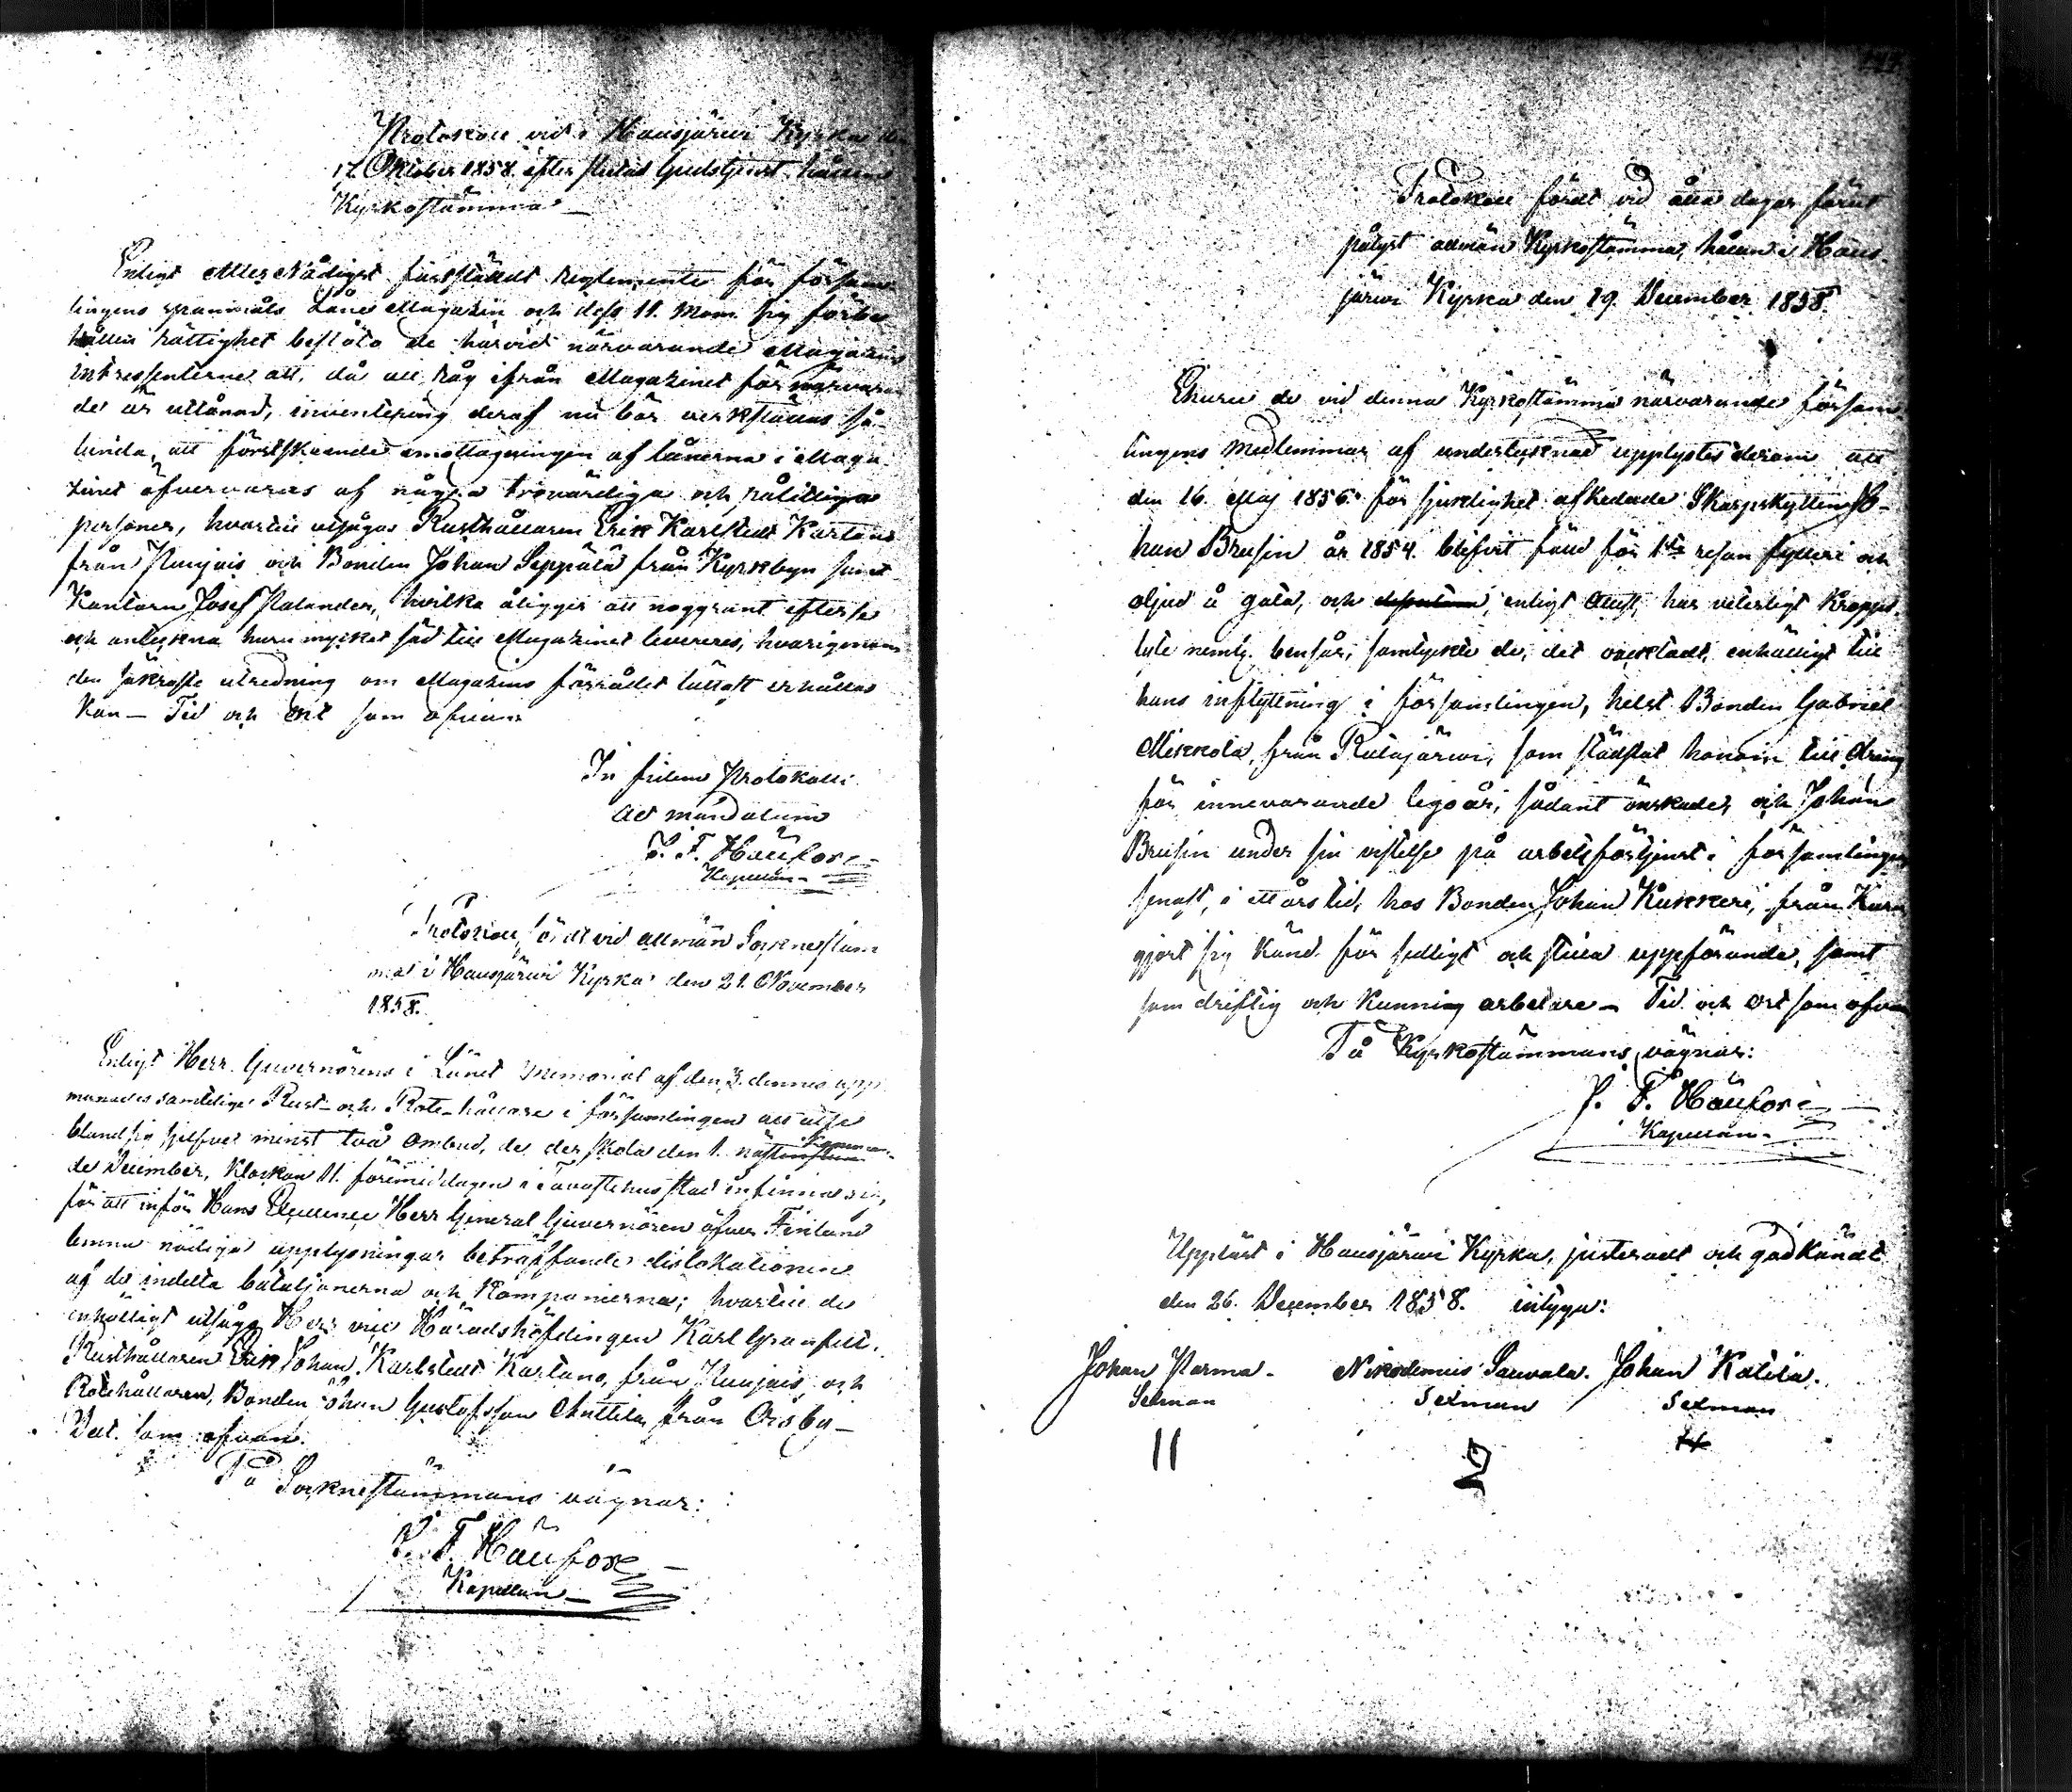 Protokoll vid i Hausjärwi Kyrka den
17 Oktober 1858 efter slutad Gudstjenst hållen
Kyrkostämma
Enligt Aller Nådigst fastställdt Reglemente för försam
lingens spannmåls Låne Magazin och dess 11. Mom. sig förbe
hållen rättighet beslöto de härvid närvarande Magazins
intressenterne att, då all råg ifrån Magazinet för närvaran
de är utlånad, inventering deraf nu bör verkställas så-
lunda, att förestående emottagningen af lånerna i Maga
zinet öfvervaras af några trovärdiga och pålitliga
personer, hvartill utsågos Rusthållaren Erik Karlstedt Kartano
från Punjais och Bonden Johan Seppälä från Kyrkbyn samt
Kantorn Josef Palander, hvilka åligger att noggrant efterse
och anteckna huru mycket säd till Magazinet levereres, hvarigenom
den säkraste utredning om Magazins förrådet lättast erhållas
kan — Tid och ort som ofvan
In fidem Protokolli
ad mandatum
P. F. Häufors
Kapellan
Protokoll, fördt vid allmän Socknestäm
ma i Hausjärwi Kyrka den 21. November
1858.
Enligt Herr Guvernörens i Länet Memorial af den 3. dennes upp
manades samtelige Rust- och Rote-hållare i församlingen att utse
bland sig sjelfve minst två ombud, de der skola den 1. nästan
komman-
de December, klockan 11. förmiddagen i Tavastehus stad infinna sig,
för att inför Hans Excellence Herr General Guvernören öfver Finland
lemna nödiga upplysningar beträffande dislokationen
af de indelta bataljonerna och Kompanierna; hvartill de
enhälligt utsågo Herr vice Häradshöfdingen Karl Granfelt,
Rusthållaren Erik Johan Karlstedt Kartano, från Punjais, och
Rotehållaren, Bonden Johan Gustafsson Anttila från Oisby —
Dat. som ofvan.
På Socknestämmans vägnar:
P. F. Häufors
Kapellan
Protokoll fördt vid åtta dagar förut
pålyst allmän Kyrkostämma, hållen i Haus-
järwi Kyrka den 19. December 1858.
Ehuru de vid denna Kyrkostämma närvarande försam
lingens medlemmar af undertecknad upplystes derom att
den 16. Maj 1856. för sjuklighet afskedade Skarpskytten Jo-
han Brusin år 1854. blifvit fälld för 1sta resan fylleri och
oljud å gata, och enligt Attest, har veterligt kropps-
lyte neml. bensår, samtyckte de, det oaktadt, enhälligt till
hans inflyttning i församlingen, helst Bonden Gabriel
Mikkola, från Ridasjärwi, som städslat honom till dräng
för innevarande lego år, sådant önskade, och Johan
Brusin under sin vistelse på arbetsförtjenst i församlingen
senast, i ett års tid, hos Bonden Johan Kukkeri, från Kara
gjort sig känd för sedligt och stilla uppförande, samt
som driftig och kunnig arbetare — Tid och ort som ofvan
På Kyrkostämmans vägnar:
P. F. Häufors
Kapellan
Uppläst i Hausjärwi Kyrka, justeradt och godkändt
den 26. December 1858. intyga:
Johan Parma. Nikodemus Sauvala. Johan Katila.
Sexman Sexman Sexman